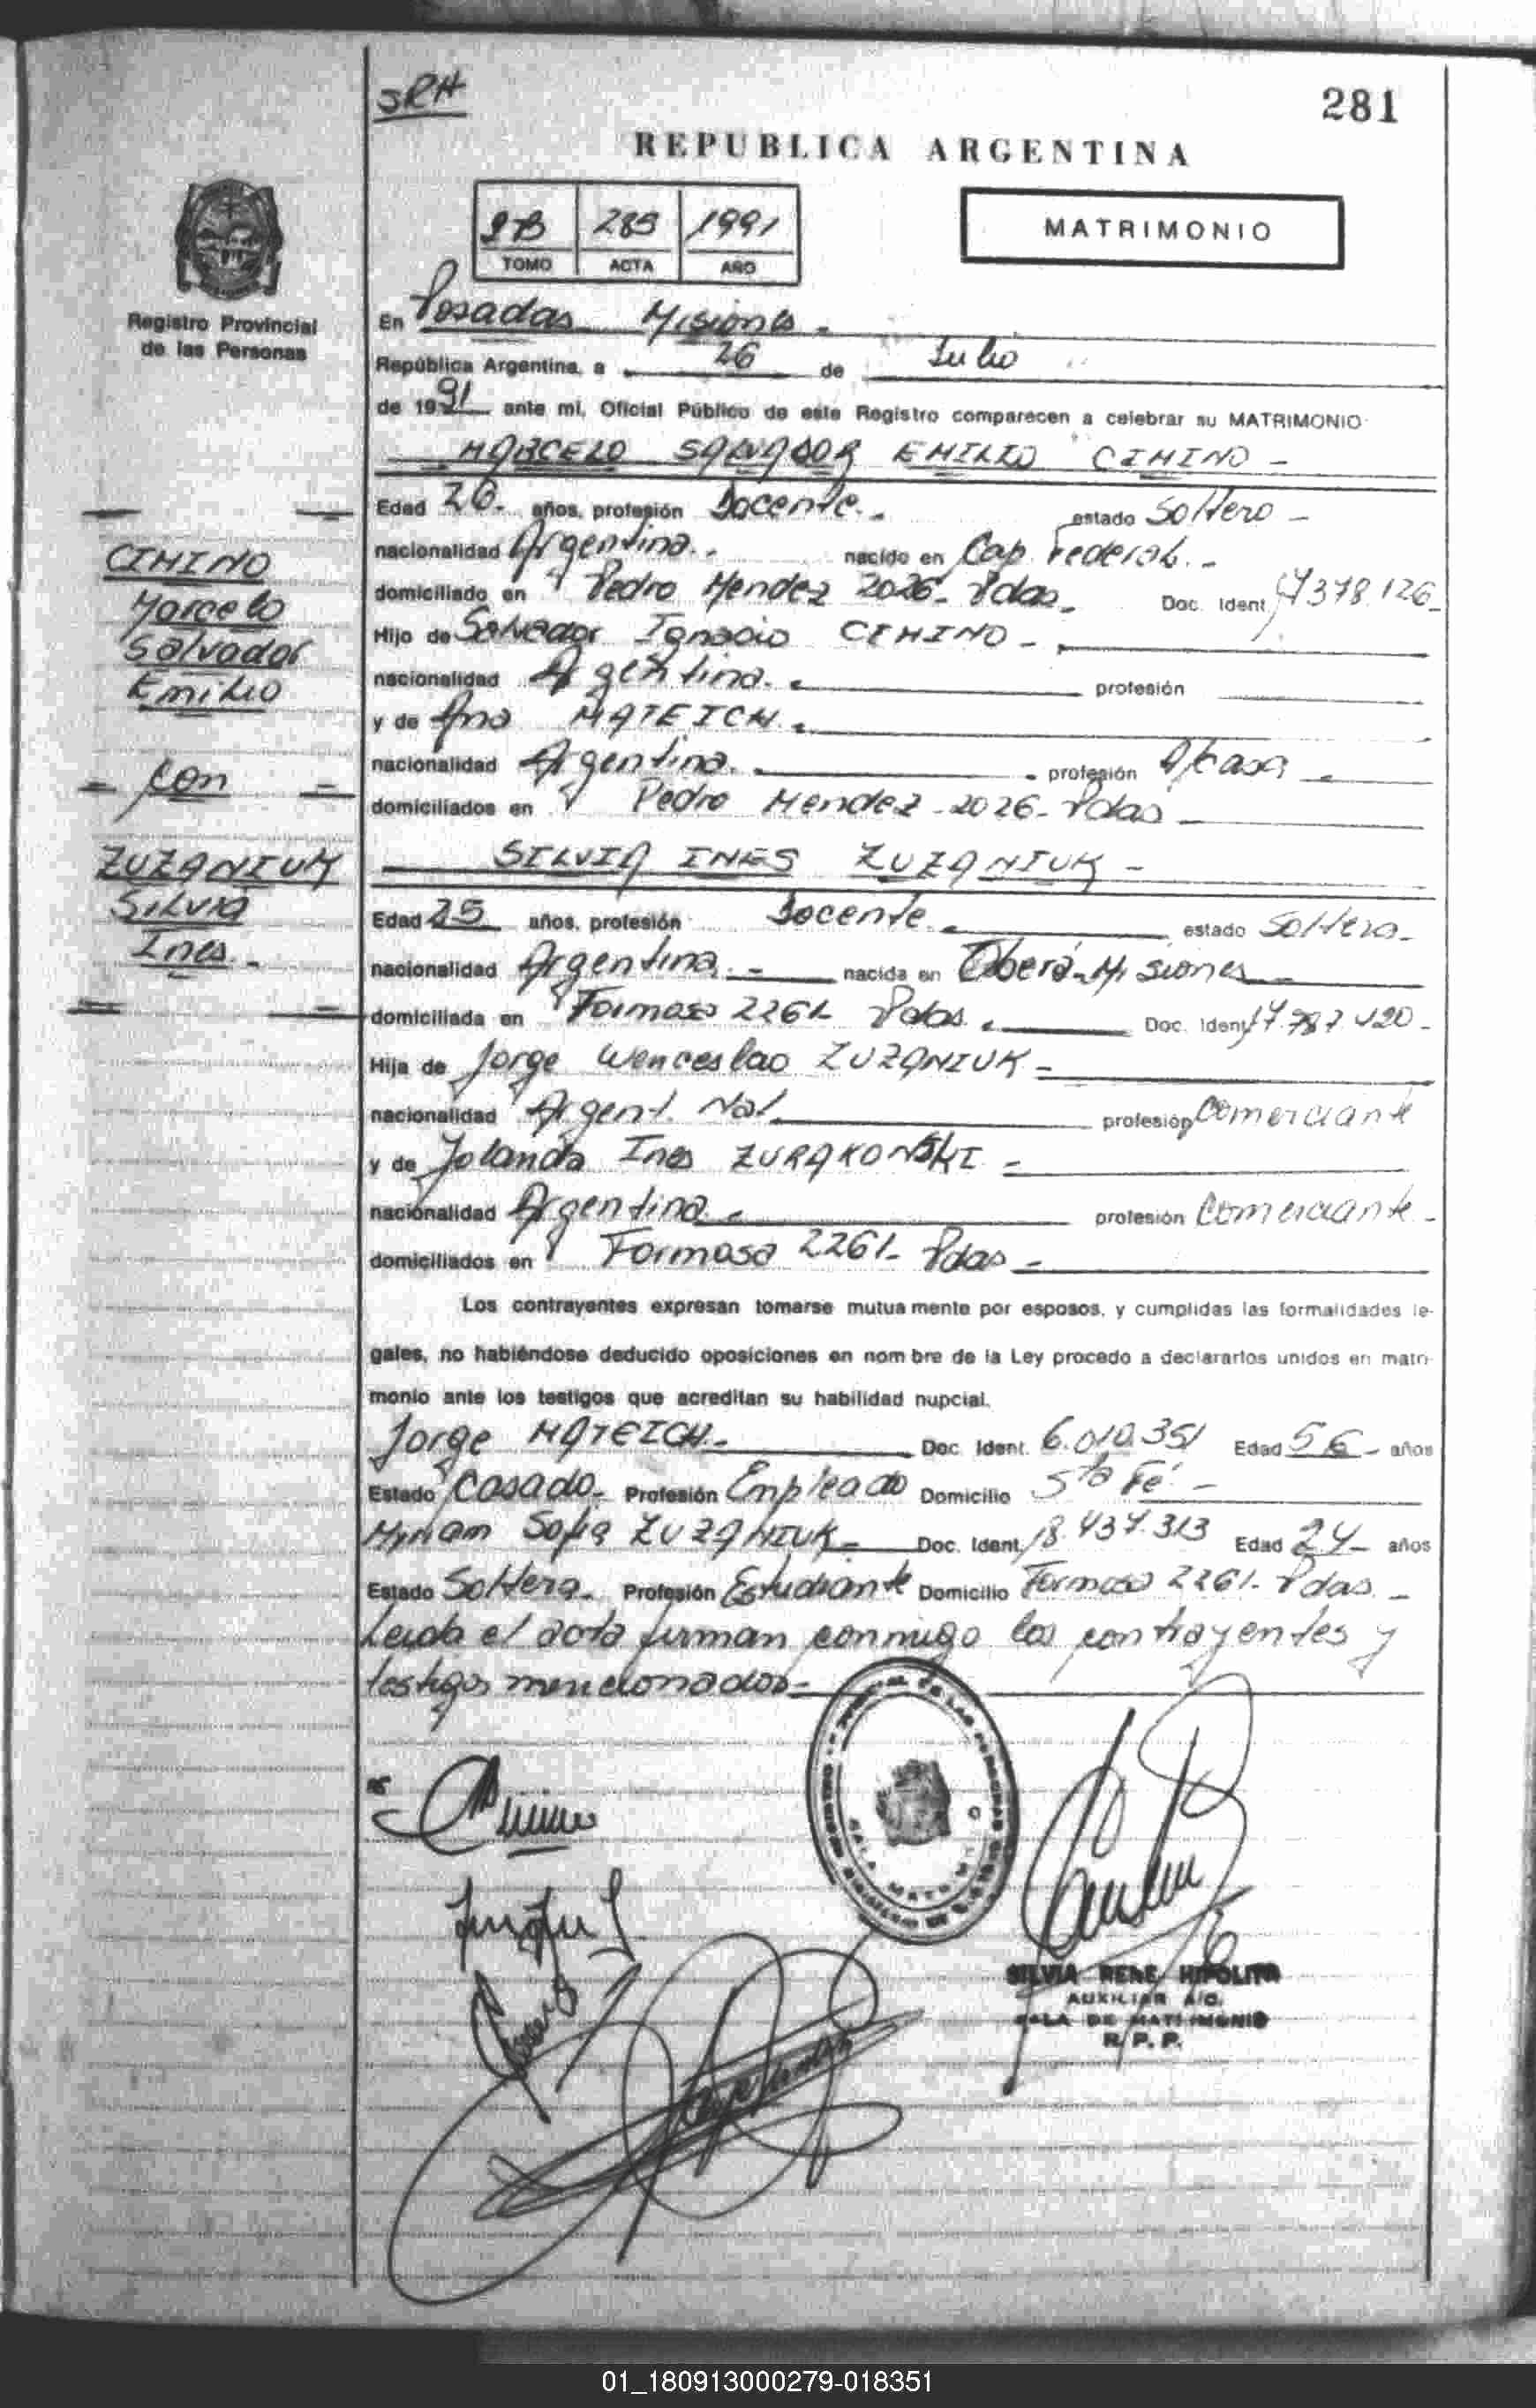 SRH
281
REPUBLICA ARGENTINA
285 1991
TOMO ACTA AÑO
MATRIMONIO
Registro Provincial
de las Personas
En Posadas Misiones -
República Argentina, a 26 de Julio
de 1991 ante mi, Oficial Público de este Registro comparecen a celebrar su MATRIMONIO
MARCELO SALVADOR EMILIO CIMINO -
Edad 26. años, profesión Docente. estado Soltero -
nacionalidad Argentina. nacido en Cap. Federal. -
domiciliado en Pedro Mendez 2026 - Pdas. Doc. Ident 17.378.126
Hijo de Salvador Ignacio CIMINO -
nacionalidad Argentina. profesión
y de Ana MATEICH.
nacionalidad Argentina. profesión
domiciliados en Pedro Mendez - 2026 - Pdas
SILVIA INES ZUZANIUK -
Edad 25 años, profesión Docente. estado Soltera -
nacionalidad Argentina. - nacida en Oberá - Misiones
domiciliada en Formosa 2261 Pdas. Doc. Ident 17.787.420 -
Hija de Jorge Wenceslao ZUZANIUK -
nacionalidad Argent. Nat. profesión Comerciante
y de Yolanda Ines ZURAKONSKI -
nacionalidad Argentina - profesión Comerciante -
domiciliados en Formosa 2261 - Pdas -
Los contrayentes expresan tomarse mutua mente por esposos, y cumplidas las formalidades le-
gales, no habiéndose deducido oposiciones en nom bre de la Ley procedo a declararlos unidos en matri-
monio ante los testigos que acreditan su habilidad nupcial.
Jorge MATEICH. - Doc. Ident. 6.010.351 Edad 56 - años
Estado Casado - Profesión Empleado Domicilio Sta Fé. -
Myriam Sofia ZUZANIUK - Doc. Ident. 18.437.313 Edad 24 - años
Estado Soltera. Profesión Estudiante Domicilio Formosa 2261 - Pdas. -
Leida el acta firman conmigo los contrayentes y
testigos mencionados -
CIMINO
Marcelo
Salvador
Emilio
- con -
ZUZANIUK
Silvia
Ines. -
SILVIA RENE HIPOLITO
AUXILIAR A/C.
SALA DE MATRIMONIO
R. P. P.
01_180913000279-018351